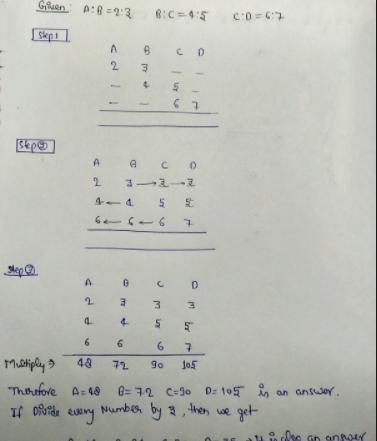 Given: A:B=2:3 B:C=4:5 C:D=6:7
Step 1
A B C D
2 3 _ _
_ 4 5 _
_ _ 6 7
Step ②
A B C D
2 3→3→3
4←4 5 5
6←6←6 7
Step ③
A B C D
2 3 3 3
4 4 5 5
6 6 6 7
Multiply→ 48 72 90 105
Therefore A=48 B=72 C=90 D=105 is an answer.
If Divide every Number by 3, then we get